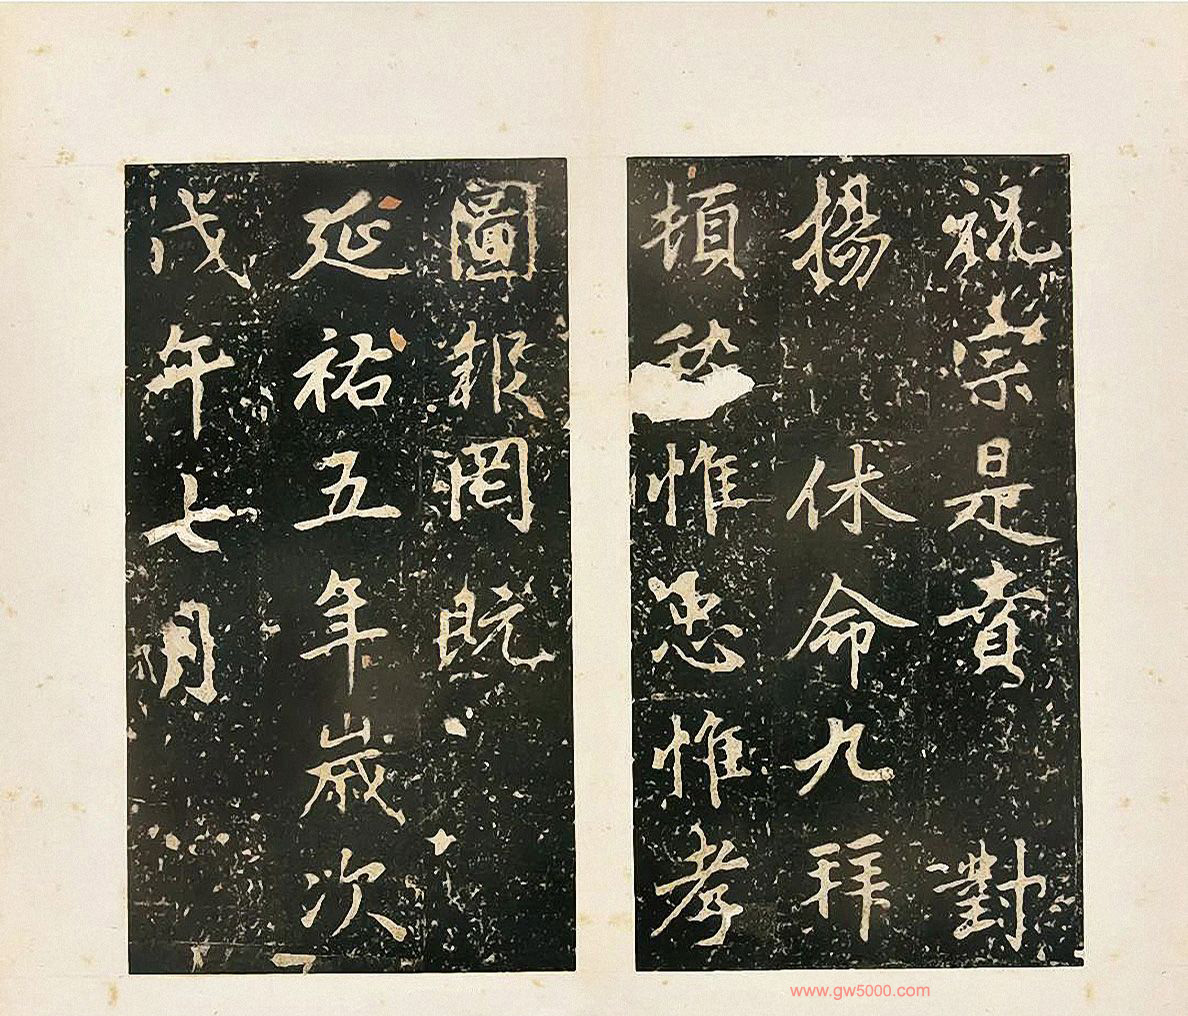 祝崇是賁對
揚休命九拜
頓惟忠惟孝
圖報罔既
延祐五年歲次
戊午七月
www.gw5000.com